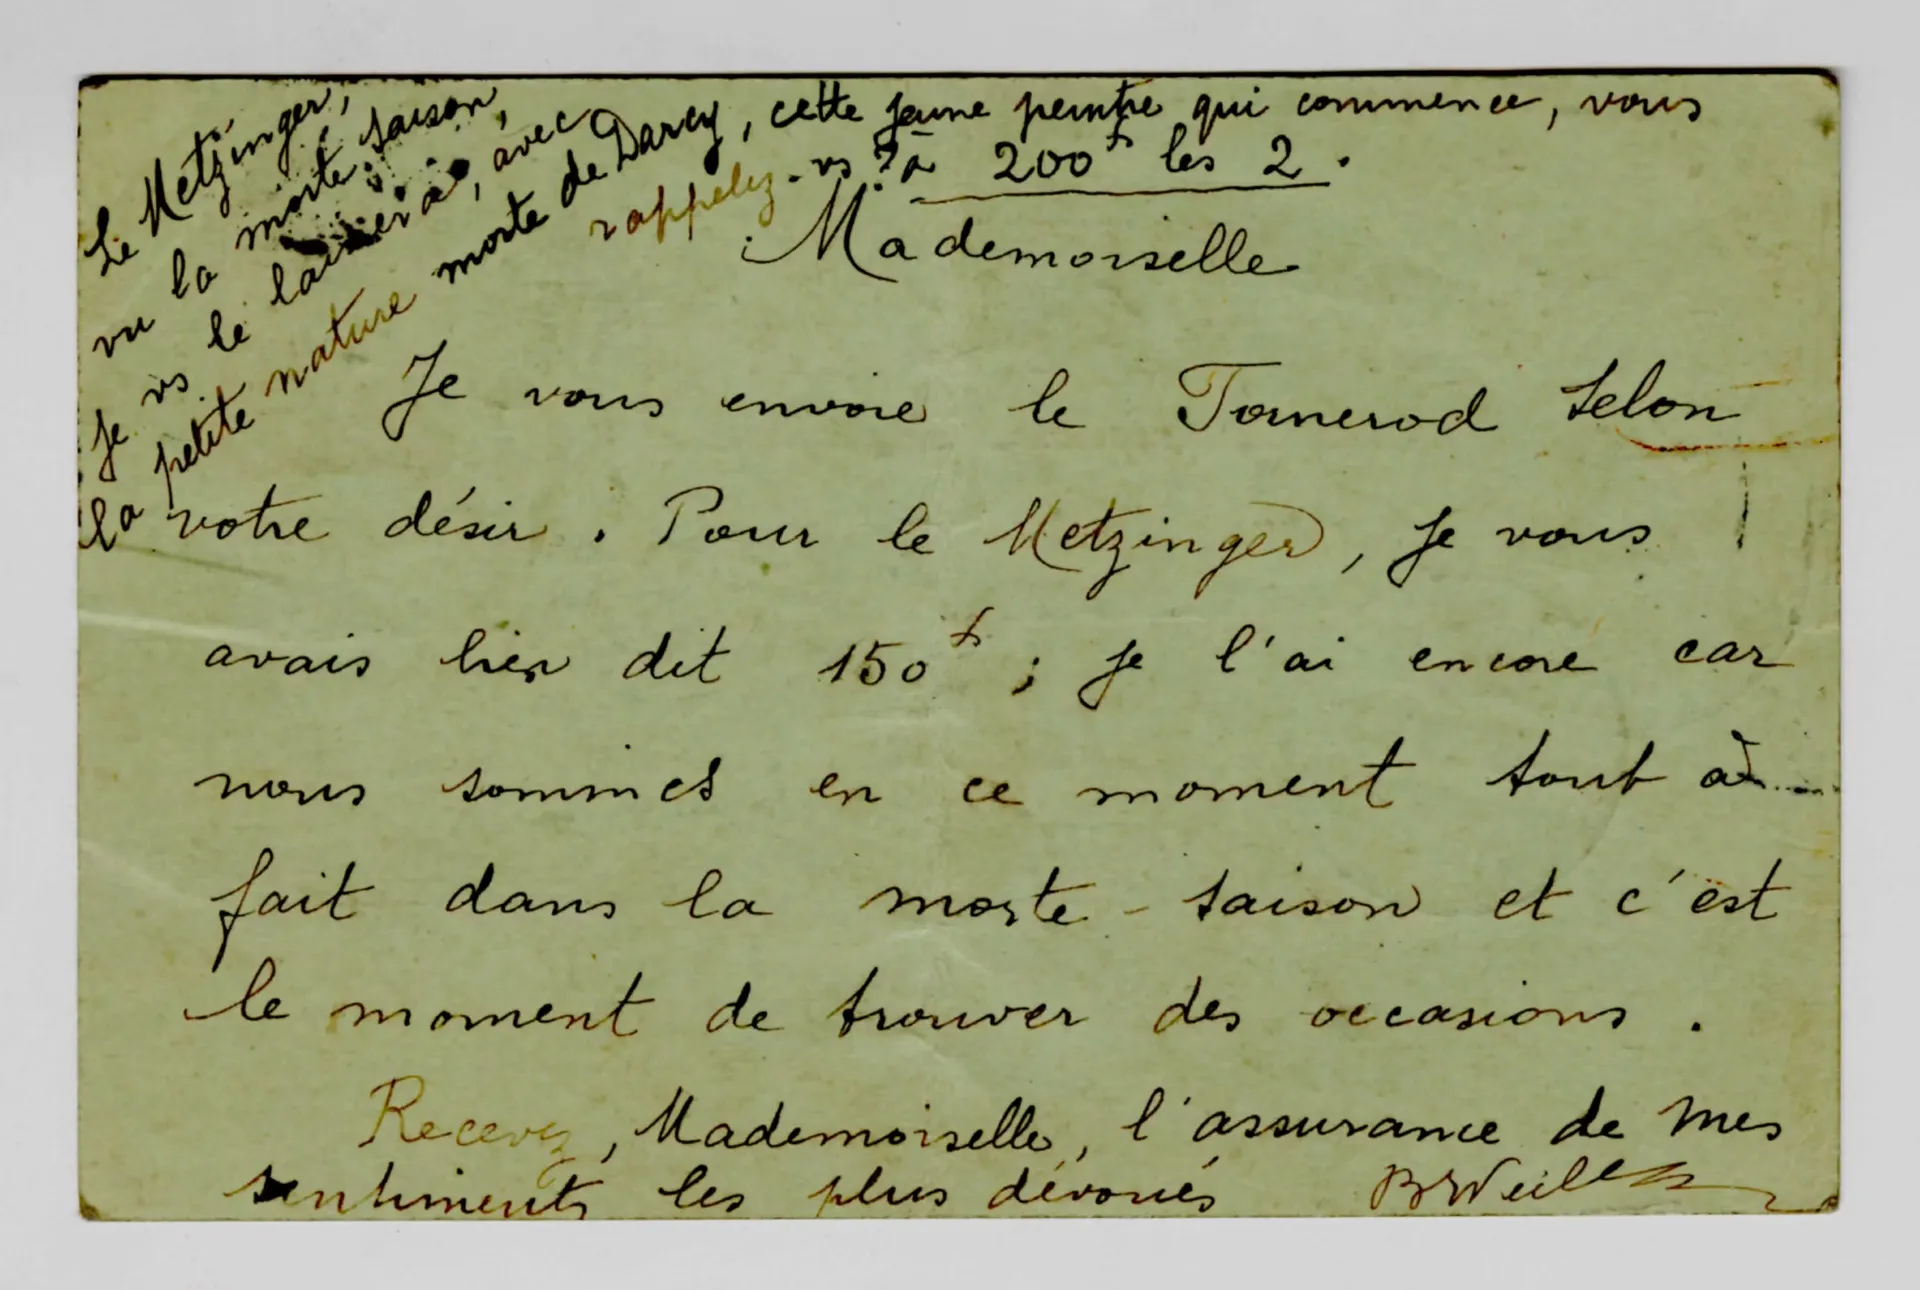 Le Metzinger,
vu la morte-saison,
je vs le laisserai, avec
la petite nature morte de Darcy, cette jeune peintre qui commence, vous
rappelez-vs ? à 200f les 2.
Mademoiselle
Je vous envoie le Tornerod selon
votre désir. Pour le Metzinger, je vous
avais bien dit 150f ; je l'ai encore car
nous sommes en ce moment tout à
fait dans la morte-saison et c'est
le moment de trouver des occasions.
Recevez, Mademoiselle, l'assurance de mes
sentiments les plus dévoués BWeill